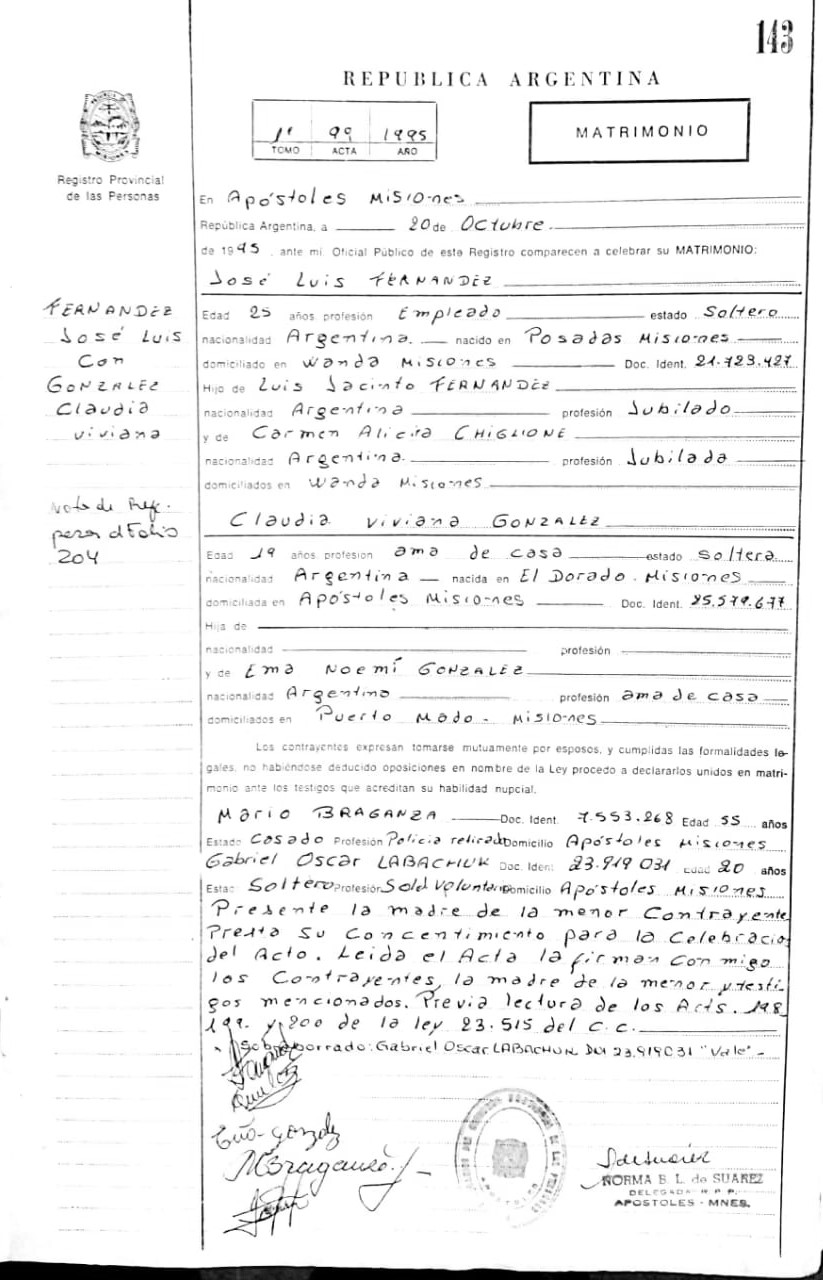 143
REPUBLICA ARGENTINA
1º 99 1995
TOMO ACTA AÑO
MATRIMONIO
Registro Provincial
de las Personas
En Apóstoles Misiones
República Argentina, a 20 de Octubre
de 1995, ante mi, Oficial Público de este Registro comparecen a celebrar su MATRIMONIO:
José Luis FERNANDEZ
FERNANDEZ
José Luis
Con
GONZALEZ
Claudia
Viviana
Edad 25 años profesión Empleado estado Soltero
nacionalidad Argentina. nacido en Posadas Misiones
domiciliado en Wanda Misiones Doc. Ident. 21.723.427
Hijo de Luis Jacinto FERNANDEZ
nacionalidad Argentina profesión Jubilado
y de Carmen Alicia CHIGLIONE
nacionalidad Argentina profesión Jubilada
domiciliados en Wanda Misiones
Nota de Ref.
pasa al Folio
204
Claudia Viviana GONZALEZ
Edad 19 años profesion ama de casa estado Soltera
nacionalidad Argentina nacida en El Dorado. Misiones
domiciliada en Apóstoles Misiones Doc. Ident. 25.579.677
Hija de
nacionalidad profesión
y de Ema Noemí GONZALEZ
nacionalidad Argentina profesión ama de casa
domiciliados en Puerto Mado - Misiones
Los contrayentes expresan tomarse mutuamente por esposos, y cumplidas las formalidades le-
gales, no habiéndose deducido oposiciones en nombre de la Ley procedo a declararlos unidos en matri-
monio ante los testigos que acreditan su habilidad nupcial.
Mario BRAGANZA Doc. Ident. 7.553.268 Edad 55 años
Estado Casado Profesión Policia retirado Domicilio Apóstoles Misiones
Gabriel Oscar LABACHUK Doc. Ident 23.919 031 Edad 20 años
Estado Soltero Profesión Sold Voluntario Domicilio Apóstoles Misiones
Presente la madre de la menor Contrayente
Presta su Concentimiento para la Celebracio
del Acto. Leida el Acta la firman Con migo
los Contrayentes, la madre de la menor y testi
gos mencionados. Previa lectura de los Arts. 198
199. y 200 de la ley 23.515 del C.C.
Sobreborrado: Gabriel Oscar LABACHUK DNI 23.919031 "Vale" -
Gonzalez
MBraganza
NORMA B. L. de SUAREZ
DELEGADA R.P.P.
APOSTOLES - MNES.